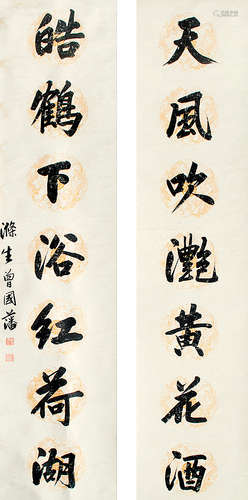 天風吹灩黄花酒
皓鶴下浴紅荷湖
滌生曾國藩